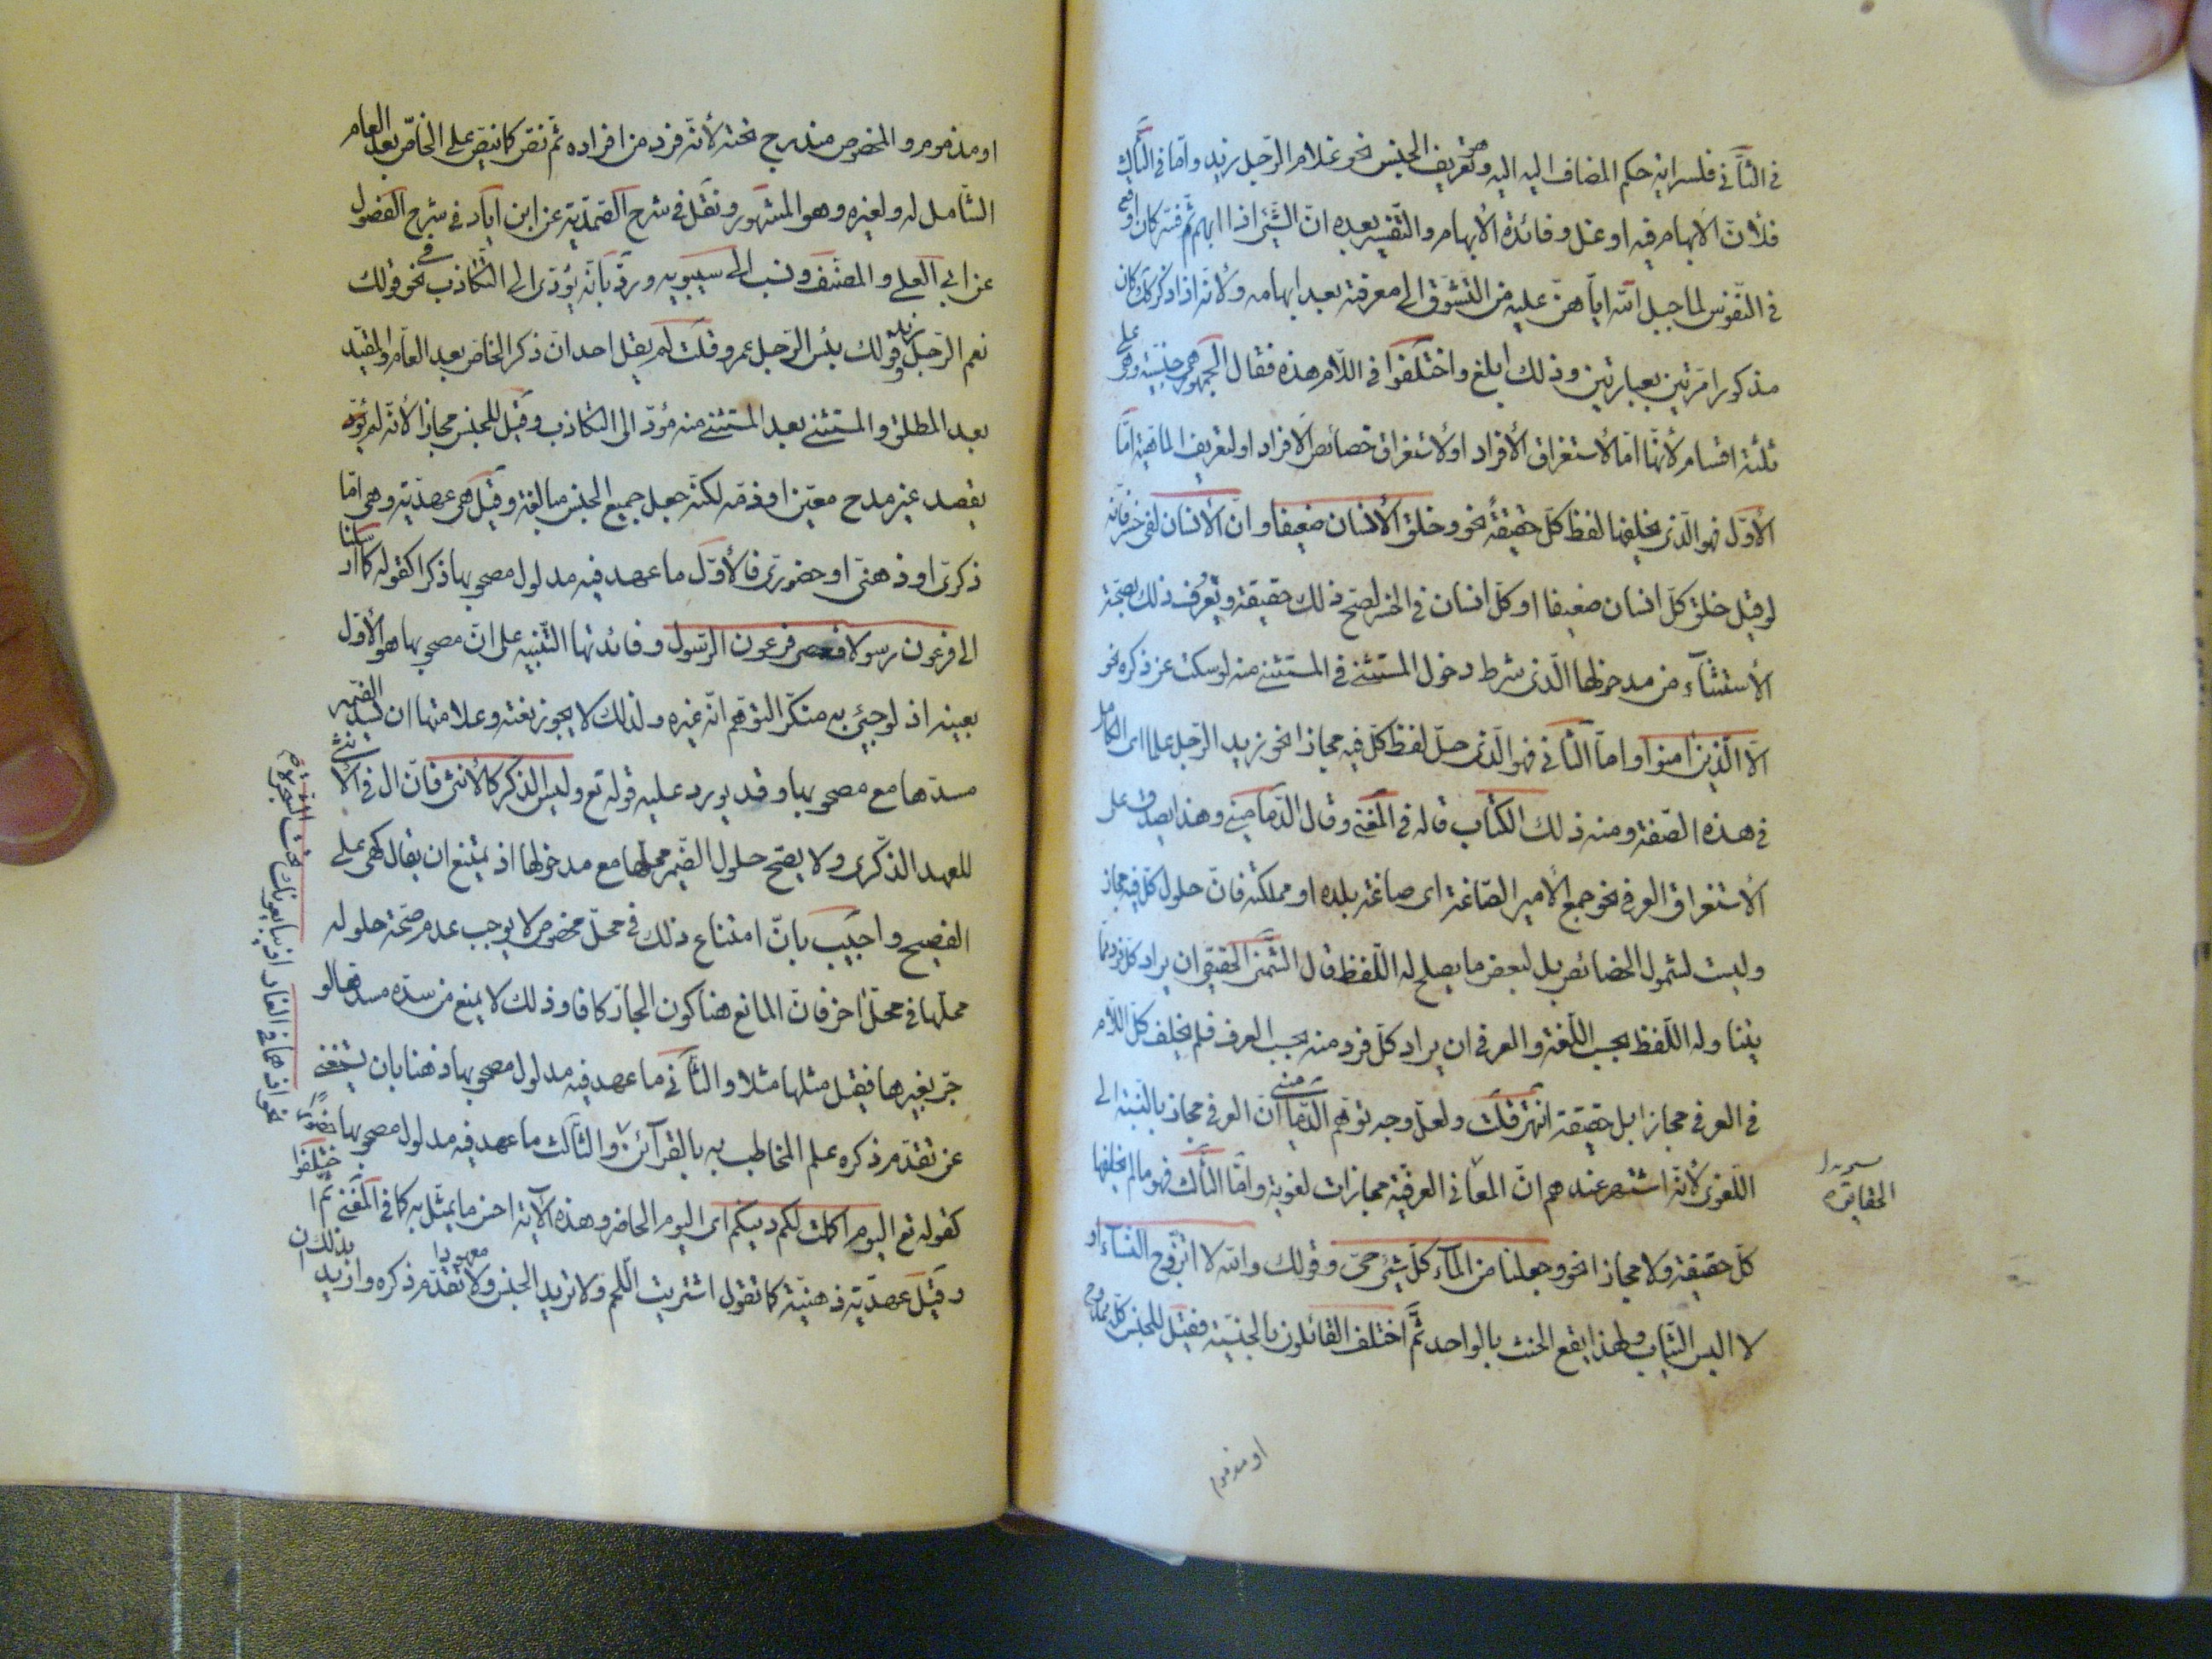 في الثاني فلسراية حكم المضاف اليه اليه وهو تعريف الجنس نحو غلام الرجل زيد واما في الثالث
فلأن الأبهام فيه اوغل وفائدة الأبهام والتفسير بعده ان الشيئ اذا ابهم ثم فسر كان اوقع
في النفوس لما جبل الله اياهن عليه من التشوق الى معرفة بعد ابهامه ولأنه اذا ذكر كك كان
مذكورا مرتين بعبارتين وذلك ابلغ واختلفوا في اللام هذه فقال الجمهور هي جنسية وهو على
ثلثة اقسام لأنها اما لأستغراق الأفراد او لأستغراق خصائص الأفراد او لتعريف الماهية اما
الأول فهو الذي يخلفها لفظ كل حقيقة نحو وخلق الأنسان ضعيفا وان الأنسان لفي خسر فانه
لو قيل خلق كل انسان ضعيفا او كل انسان في الخسر لصح ذلك حقيقة وتعرف ذلك بصحة
الأستثناء من مدخولها الذي شرط دخول المستثنى في المستثنى منه لو سكت عن ذكره نحو
الا الذين امنوا واما الثاني فهو الذي حل لفظ كل فيه مجازا نحو زيد الرجل علما اى الكامل
في هذه الصفة ومنه ذلك الكتاب قاله في المغني وقال الدماميني وهذا يصدق على
الأستغراق العرفي نحو جمع الأمير الصاغة اى صاغة بلده او مملكته فان حلول كل فيه مجاز
وليست لشمول الخصائص بل لبعض ما يصلح له اللفظ قال الشمني الحقيقي ان يراد كل فرد مما
يتناوله اللفظ بحسب اللغة والعرفي ان يراد كل فرد منه بحسب العرف فلم يخلف كل اللام
في العرفي مجازا بل حقيقة انتهى قلت ولعل وجه توهم الدماميني ان العرفي مجاز بالنسبة الى
اللغوى لأنه اشتهر عندهم ان المعاني العرفية مجازات لغوية واما الثالث فهو ما لم يخلفها
كل حقيقة ولا مجازا نحو وجعلنا من الماء كل شيئ حى وقولك والله لا اتزوج النساء او
لا البس الثياب ولهذا يقع الحنث بالواحد ثم اختلف القائلون بالجنسية فقيل للجنس كل ممدوح
او مذموم
او مذموم والمخصوص مندرج تحته لأنه فرد من افراده ثم نص كما ينص على الخاص بعد العام
الشامل له ولغيره وهو المشهور ونقل في شرح الصمدية عن ابن اياد في شرح الفصول
عن ابي العلى والمصنف ونسب الى سيبويه ورد بانه يؤدى الى التكاذب في نحو قولك
نعم الرجل زيد وقولك بئس الرجل عمرو قلت لم يقل احد ان ذكر الخاص بعد العام والمقيد
بعد المطلق والمستثنى بعد المستثنى منه مؤد الى التكاذب وقيل للجنس مجازا لأنه لم
يقصد غير مدح معين او ذمه لكنه جعل جميع الجنس مبالغة وقيل هى عهدية وهى اما
ذكرى او ذهنى او حضورى فالأول ما عهد فيه مدلول مصحوبها ذكرا كقوله كما ارسلنا
الى فرعون رسولا فعصى فرعون الرسول وفائدتها التنبيه على ان مصحوبها هو الأول
بعينه اذ لو جيئ به منكرا لتوهم انه غيره ولذلك لا يجوز نعته وعلامتها ان يسد الضمير
مسدها مع مصحوبها وقد يورد عليه قوله تع وليس الذكر كالأنثى فان ال في الأنثى
للعهد الذكرى ولا يصح حلول الضمير محلها مع مدخولها اذ يمتنع ان يقال كهى على
الفصيح واجيب بان امتناع ذلك في محل مخصوص لا يوجب عدم صحة حلوله
محلها في محل اخر فان المانع هنا كون الجار كافا وذلك لا يمنع من سده مسدها لو
جر بغيرها فيقل مثلها مثلا والثاني ما عهد فيه مدلول مصحوبها ذهنا بان يستغنى
عن تقدم ذكره علم المخاطب به بالقرآئن والثالث ما عهد فيه مدلول مصحوبها حضورا
كقوله تع اليوم اكملت لكم دينكم اى اليوم الحاضر وهذه الآية احسن ما يمثل به كما في المغني ثم اختلفوا
وقيل عهدية ذهنية كما تقول اشتريت اللحم ولا تريد الجنس ولا معهودا تقدم ذكره واريد بذلك ان
نحو اذ هما في الغار اذ يبايعونك تحت الشجرة